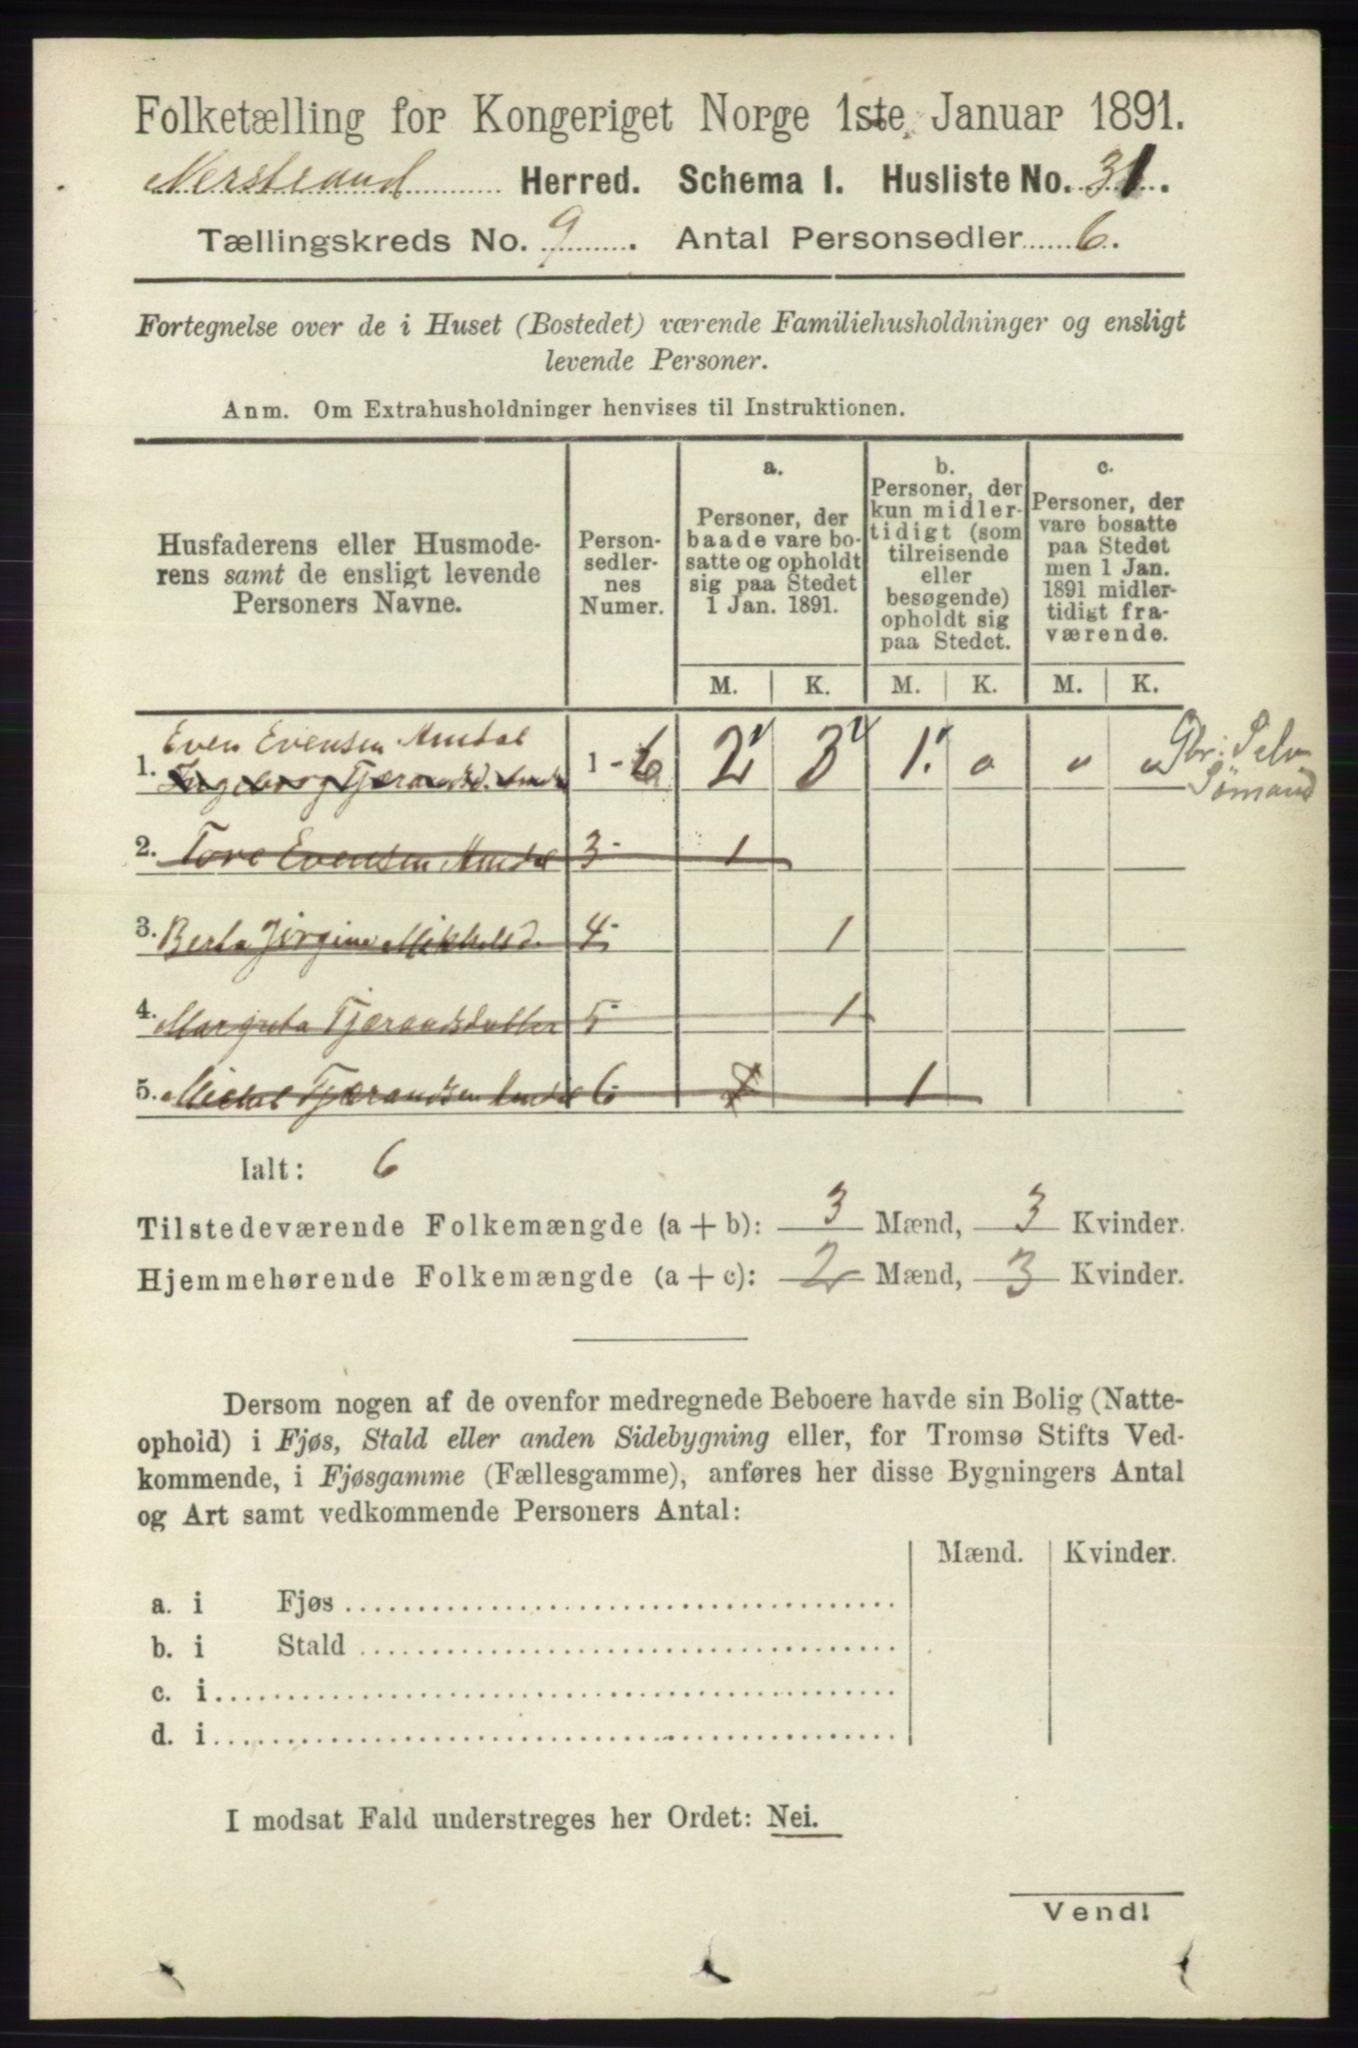 Folketælling for Kongeriget Norge 1ste Januar 1891.
Nerstrand Herred. Schema I. Husliste No. 31.
Tællingskreds No. 9. Antal Personsedler 6.
Fortegnelse over de i Huset (Bostedet) værende Familiehusholdninger og ensligt
levende Personer.
Anm. Om Extrahusholdninger henvises til Instruktionen.
Husfaderens eller Husmode-
rens samt de ensligt levende
Personers Navne.
Person-
sedler-
nes
Numer.
a.
Personer, der
baade vare bo-
satte og opholdt
sig paa Stedet
1 Jan. 1891.
b.
Personer, der
kun midler-
tidigt (som
tilreisende
eller
besøgende)
opholdt sig
paa Stedet.
c.
Personer, der
vare bosatte
paa Stedet
men 1 Jan.
1891 midler-
tidigt fra-
værende.
M. K. M. K. M. K.
Even Evensen
1. Ingeborg Tjærandsd. 1 - 6 2 3 1. 0 " " Gbr: Selv
Sømand
2. Tore Evensen 3 - 1
3. Berta Jørgine Mikkelsd. 4 - 1
4. Margreta Tjærandsdatter 5 - 1
5. Michel Tjærandsen 6 - 1
Ialt: 6
Tilstedeværende Folkemængde (a + b): 3 Mænd, 3 Kvinder.
Hjemmehørende Folkemængde (a + c): 2 Mænd, 3 Kvinder.
Dersom nogen af de ovenfor medregnede Beboere havde sin Bolig (Natte-
ophold) i Fjøs, Stald eller anden Sidebygning eller, for Tromsø Stifts Ved-
kommende, i Fjøsgamme (Fællesgamme), anføres her disse Bygningers Antal
og Art samt vedkommende Personers Antal:
Mænd. Kvinder.
a. i Fjøs
b. i Stald
c. i
d. i
I modsat Fald understreges her Ordet: Nei.
Vend!